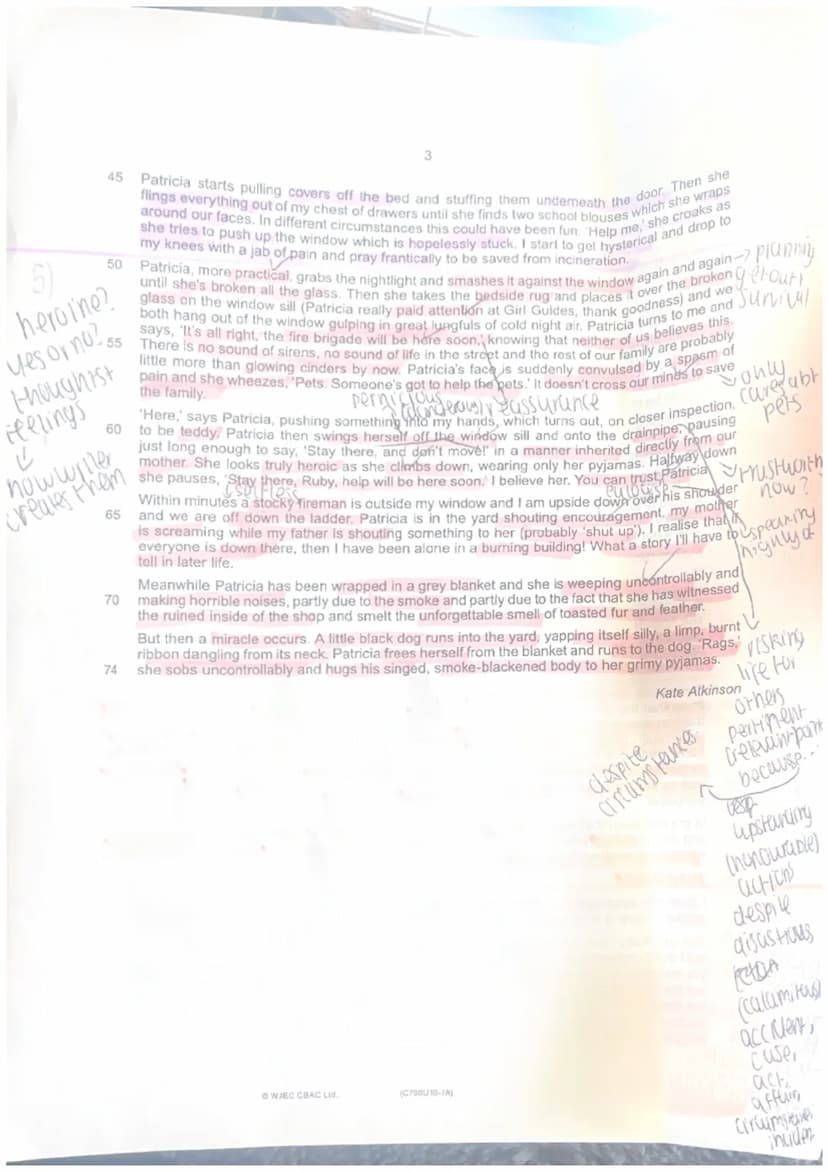 3
45 Patricia starts pulling covers off the bed and stuffing them underneath the door. Then she
flings everything out of my chest of drawers until she finds two school blouses which she wraps
around our faces. In different circumstances this could have been fun. 'Help me,' she croaks as
she tries to push up the window which is hopelessly stuck. I start to get hysterical and drop to
my knees with a jab of pain and pray frantically to be saved from incineration.
50 Patricia, more practical, grabs the nightlight and smashes it against the window again and again
until she's broken all the glass. Then she takes the bedside rug and places it over the broken
glass on the window sill (Patricia really paid attention at Girl Guides, thank goodness) and we
both hang out of the window gulping in great lungfuls of cold night air. Patricia turns to me and
55 says, 'It's all right, the fire brigade will be here soon,' knowing that neither of us believes this.
There is no sound of sirens, no sound of life in the street and the rest of our family are probably
little more than glowing cinders by now. Patricia's face is suddenly convulsed by a spasm of
pain and she wheezes, 'Pets. Someone's got to help the pets.' It doesn't cross our minds to save
the family.
'Here,' says Patricia, pushing something into my hands, which turns out, on closer inspection,
60 to be teddy. Patricia then swings herself off the window sill and onto the drainpipe, pausing
just long enough to say, 'Stay there, and don't move!' in a manner inherited directly from our
mother. She looks truly heroic as she climbs down, wearing only her pyjamas. Halfway down
she pauses, 'Stay there, Ruby, help will be here soon.' I believe her. You can trust Patricia.
Within minutes a stocky fireman is outside my window and I am upside down over his shoulder
65 and we are off down the ladder. Patricia is in the yard shouting encouragement, my mother
is screaming while my father is shouting something to her (probably 'shut up'). I realise that if
everyone is down there, then I have been alone in a burning building! What a story I'll have to
tell in later life.
Meanwhile Patricia has been wrapped in a grey blanket and she is weeping uncontrollably and
70 making horrible noises, partly due to the smoke and partly due to the fact that she has witnessed
the ruined inside of the shop and smelt the unforgettable smell of toasted fur and feather.
But then a miracle occurs. A little black dog runs into the yard, yapping itself silly, a limp, burnt
ribbon dangling from its neck. Patricia frees herself from the blanket and runs to the dog. 'Rags,'
74 she sobs uncontrollably and hugs his singed, smoke-blackened body to her grimy pyjamas.
Kate Atkinson
5)
heroine?
yes or no?
thoughts+
feelings
how writer
creates them
planning
get out
survival
pernicious
(dangerous) reassurance
only
cares abt
pets
selfless
trustworthy
now?
speaking
highly of
risking
life for
others
pertinent
(relevant) point
because...
despite
circumstances
upstanding
(honourable)
actions
despite
disastrous
(calamitous)
accident,
case,
act,
affair,
circumstances
incident
© WJEC CBAC Ltd.
(C700U10-1A)